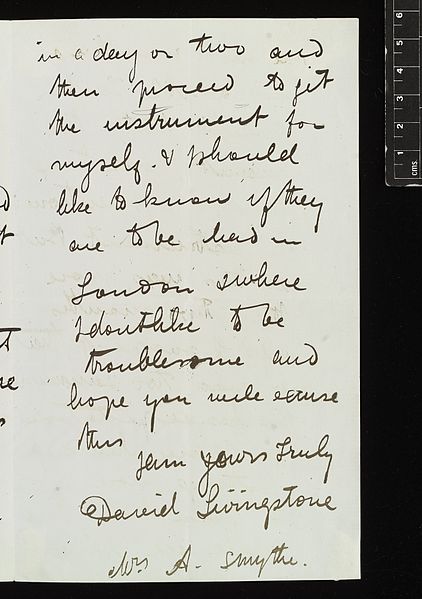 in a day or two and
then proceed to get
the instrument for
myself. & I should
like to know if they
are to be had in
London & where
I dont like to be
troublesome and
hope you will excuse
this
I am yours truly
David Livingstone
Mrs A. Smythe.
6
5
4
3
2
1
cms